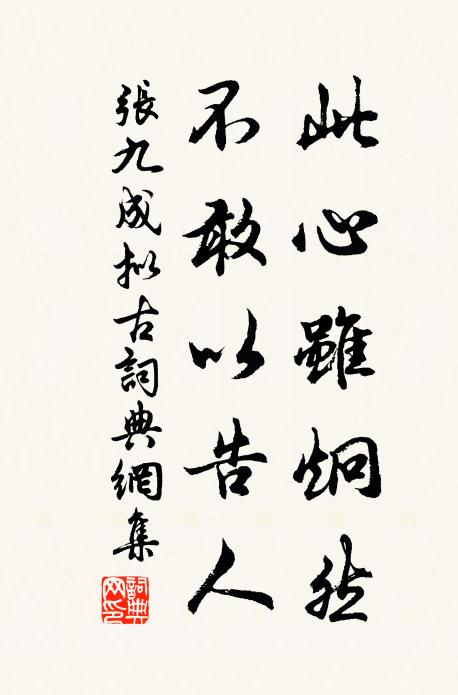 此心雖炯然
不敢以告人
張九成拟古詞典網集
詞典网印